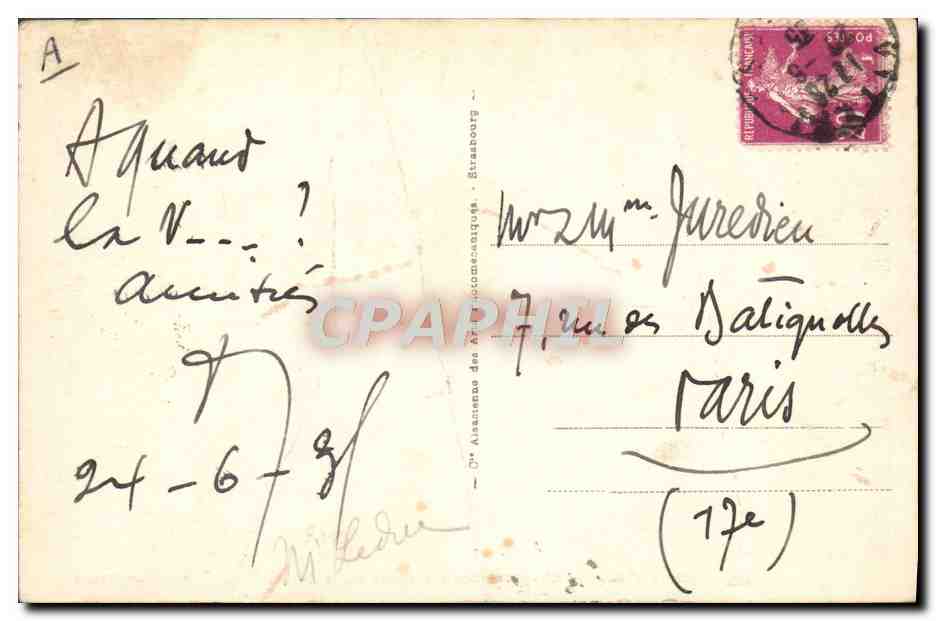 A
A quand
la V---. ?
amitiés
24-6-35
Cie Alsacienne des Arts Photomécaniques. - Strasbourg
RÉPUBLIQUE FRANÇAISE
POSTES
20c
Mr & Mme. Juredieu
7, rue des Batignolles
Paris
(17e)
CPAPHIL